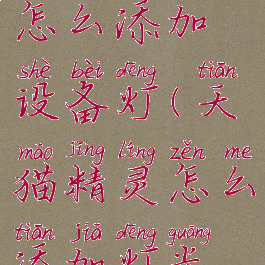 怎么添加
shè bèi dēng tiān
设备灯(天
māo jīng líng zěn me
猫精灵怎么
tiān jiā dēng guāng
添加灯光